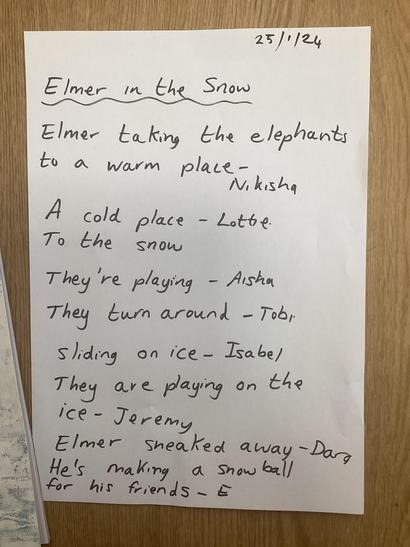 25/1/24
Elmer in the Snow
Elmer taking the elephants
to a warm place -
Nikisha
A cold place - Lottie.
To the snow
They're playing - Aisha
They turn around - Tobi
sliding on ice - Isabel
They are playing on the
ice - Jeremy
Elmer sneaked away - Dara
He's making a snowball
for his friends - E